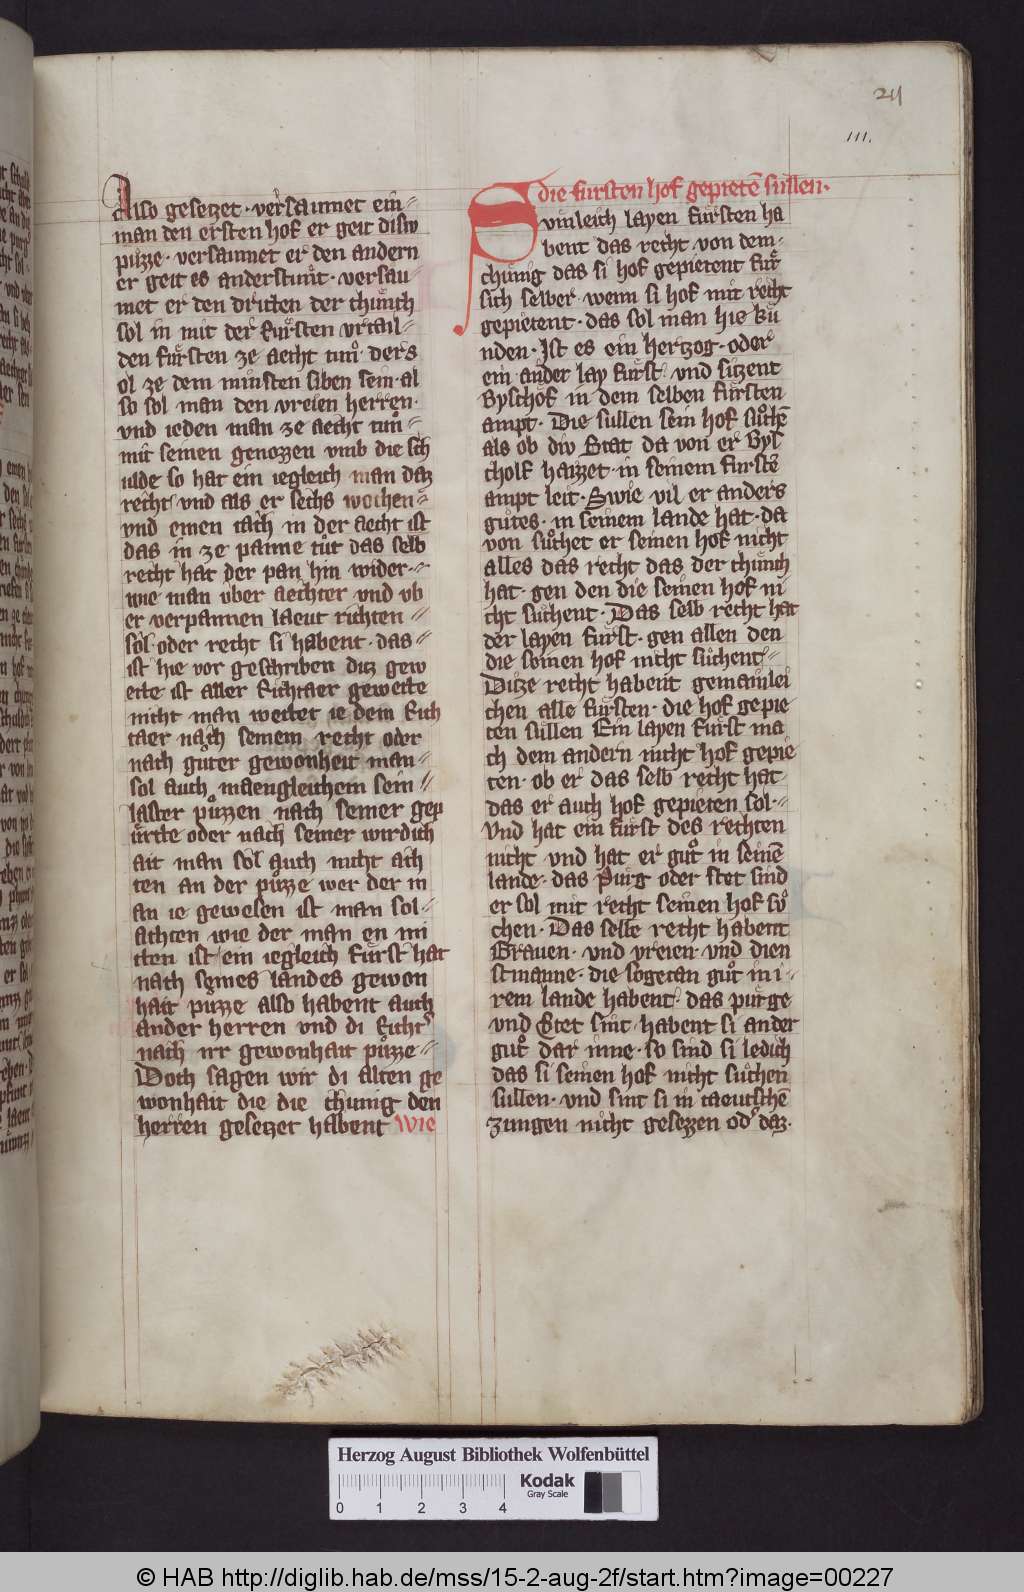 211
111.
Also gesetzet · versaumet ein=
man den ersten hof er geit disiv
puͤzze · versaumet er den andern
er geit es anderstunt · versau=
met er den dritten der chuͤnich
sol in mit der fuͤrsten vrtail=
den fuͤrsten ze aecht tuͦn · der s
ol ze dem minsten siben sein · al
so sol man den vreien herren ·
vnd ieden man ze aecht tuͦn =
mit seinen genozzen vmb die sch
ulde so hat ein iegleich man daz
recht vnd als er sechs wochen =
vnd einen tach in der aecht ist
das in ze panne tuͦt das selb
recht hat der pan hin wider ·=
wie man vber aechter vnd vb
er verpannen laeut richten =
sol · oder recht si habent · das =
ist hie vor geschriben ditz gew
ette ist aller Richtaer gewette
nicht man wettet ie dem Rich
taer nach seinem recht oder
nach guͦter gewonheit man =
sol auch maengleichem sein =
laster puͦzzen nach seiner gep
uͤrtte oder nach seiner wirdich
ait man sol auch nicht ach
ten an der puͦzze wer der m
an ie gewesen ist man sol =
achten wie der man en mi
tten ist ein iegleich fuͤrst hat
nach seines landes gewon
hait puͦzze also habent auch
ander herren vnd di Richt᾽
nach irr gewonhait puͦzze =
Doch sagen wir di alten ge
wonhait die die chunig den
herren gesetzet habent Wie
die fursten hof gepietē sullen ·
Svmleich layen fuͤrsten ha
bent das recht von dem ·
chuͤnig das si hof gepietent fuͤr
sich selber wenn si hof mit recht
gepietent · das sol man hie kuͤ
nden · Ist es ein hertzog · oder
ein ander lay fuͤrst · vnd sitzent
Byschof in dem selben fuͤrsten
ampt · Die sullen sein hof suͦchē
als ob div Stat da von er Bys
cholf haizzet · in seinem furstē
ampt leit · Swie vil er anders
guͦtes · in seinem lande hat · da
von suͦchet er seinen hof nicht
alles das recht das der chuͤnich
hat · gen den die seinen hof ni
cht suͦchent · Das selb recht hat
der layen fuͤrst · gen allen den
die seinen hof nicht suͦchent =
Ditze recht habent gemainlei
chen alle fuͤrsten · die hof gepie
ten sullen Ein layen furst ma
ch dem andern nicht hof gepie
ten · ob er das selb recht hat
das er auch hof gepieten sol · =
Vnd hat ein furst des rechten
nicht vnd hat er guͦt in seinē
lande · das Purg oder stet sind
er sol mit recht seinen hof suͦ
chen · Das selbe recht habent
Grauen · vnd vreien · vnd dien
stmanne · die sogetan guͦt in i =
rem lande habent · das puͤrge
vnd Stet sint · habent si ander
guͦt dar inne · so sind si ledich
das si seinen hof nicht suͦchen
sullen · vnd sint si in taeutschē
zungen nicht gesezzen od᾽ daz ·
Herzog August Bibliothek Wolfenbüttel
0 1 2 3 4
Kodak
Gray Scale
© HAB http://diglib.hab.de/mss/15-2-aug-2f/start.htm?image=00227